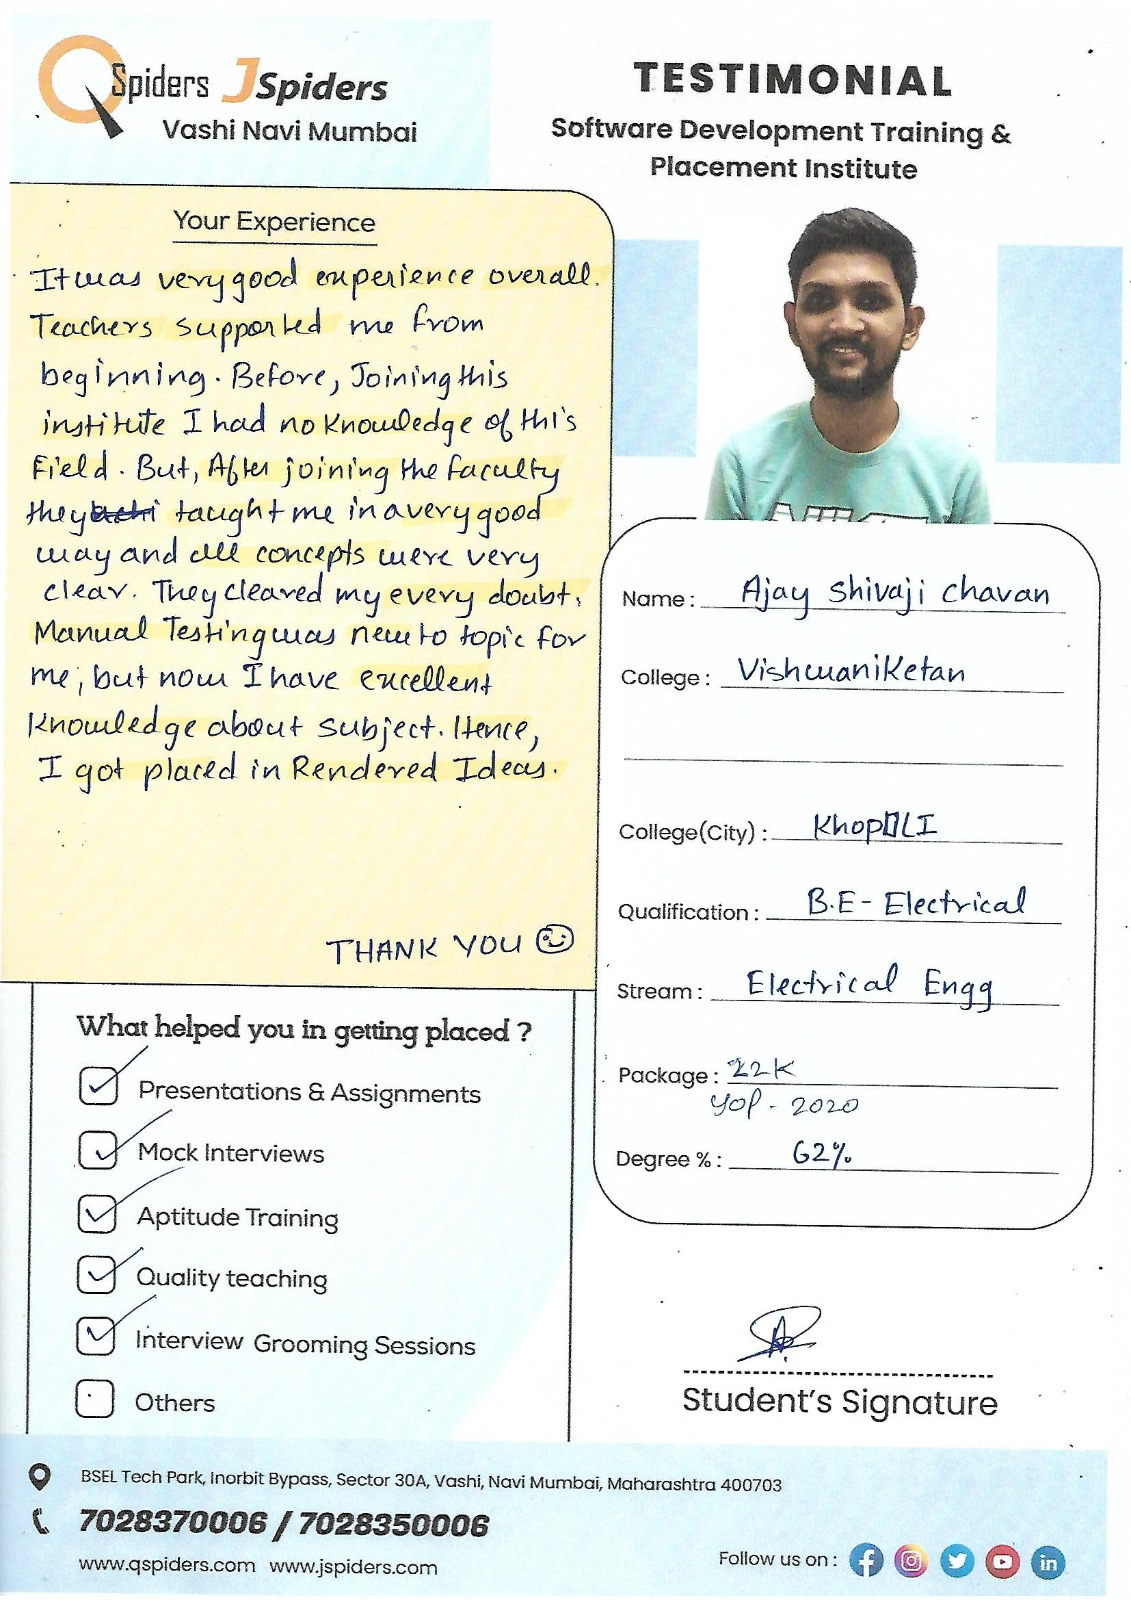 QSpiders JSpiders
Vashi Navi Mumbai
TESTIMONIAL
Software Development Training &
Placement Institute
Your Experience
It was very good experience overall.
Teachers supported me from
beginning. Before, Joining this
institute I had no knowledge of this
Field. But, After joining the faculty
they taught me in a very good
way and all concepts were very
clear. They cleared my every doubt.
Manual Testing was new to topic for
me, but now I have excellent
Knowledge about subject. Hence,
I got placed in Rendered Ideas.
THANK YOU
Name : Ajay Shivaji Chavan
College : Vishwaniketan
College(City) : KhopOLI
Qualification : B.E - Electrical
Stream : Electrical Engg
Package : 22K
YOP - 2020
Degree % : 62%
What helped you in getting placed ?
Presentations & Assignments
Mock Interviews
Aptitude Training
Quality teaching
Interview Grooming Sessions
Others
Student's Signature
BSEL Tech Park, Inorbit Bypass, Sector 30A, Vashi, Navi Mumbai, Maharashtra 400703
7028370006 / 7028350006
www.qspiders.com www.jspiders.com
Follow us on :